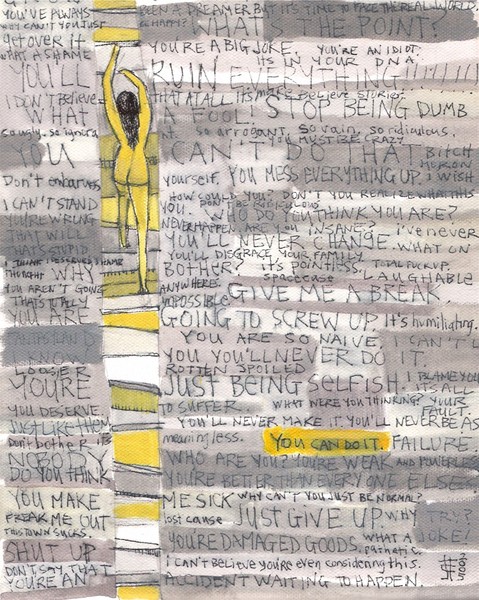 YOU'VE ALWAYS BEEN A DREAMER BUT IT'S TIME TO FACE THE REAL WORLD.
WHY CAN'T YOU JUST BE HAPPY? WHAT'S THE POINT?
get over it YOU'RE A BIG JOKE. YOU'RE AN IDIOT.
WHAT A SHAME ITS IN YOUR DNA.
YOU'LL RUIN EVERYTHING!!!!!!!
I DON'T Believe THAT AT ALL. STORIES. STOP BEING DUMB
WHAT A FOOL.
so ugly. so ignorant. so arrogant, so vain, so ridiculous.
YOU MUST BE CRAZY
YOU CAN'T DO THAT Bitch
MORON
Don't embarrass yourself. YOU MESS EVERYTHING UP. I WISH
I CAN'T STAND YOU. HOW COULD YOU? DON'T YOU REALIZE WHAT THIS
YOU'RE WRONG WHO DO YOU THINK YOU ARE?
THAT WILL NEVER HAPPEN. ARE YOU INSANE? I've never
THAT'S STUPID YOU'LL NEVER CHANGE. WHAT ON
YOU'LL DISGRACE YOUR FAMILY
THOUGHT WHY BOTHER? it's pointless. TOTAL FUCKUP.
YOU AREN'T GOING ANYWHERE. LAUGHABLE
THAT'S TOTALLY IMPOSSIBLE GIVE ME A BREAK.
YOU ARE GOING TO SCREW UP. It's humiliating.
YOU ARE SO NAIVE. I CAN'T
KNOW YOU. YOU'LL NEVER DO IT.
LOOSER ROTTEN SPOILED
YOU'RE JUST BEING SELFISH. I BLAME YOU
IT'S ALL
YOU DESERVE TO SUFFER. WHAT WERE YOU THINKING? YOUR
FAULT.
JUST LIKE THEM YOU'LL NEVER MAKE IT. YOU'LL NEVER BE AS
Don't bother it's meaningless. YOU CAN DO IT. FAILURE.
NOBODY WHO ARE YOU? YOU'RE WEAK AND POWERLESS
DO YOU THINK YOU'RE BETTER THAN EVERYONE ELSE?
YOU MAKE ME SICK WHY CAN'T YOU JUST BE NORMAL?
FREAK ME OUT lost cause JUST GIVE UP WHY TRY?
THIS TOWN SUCKS. YOU'RE DAMAGED GOODS. WHAT A JOKE!
SHUT UP pathetic.
DON'T SAY THAT I can't believe you're even considering this.
YOU'RE AN ACCIDENT WAITING TO HAPPEN.
2005